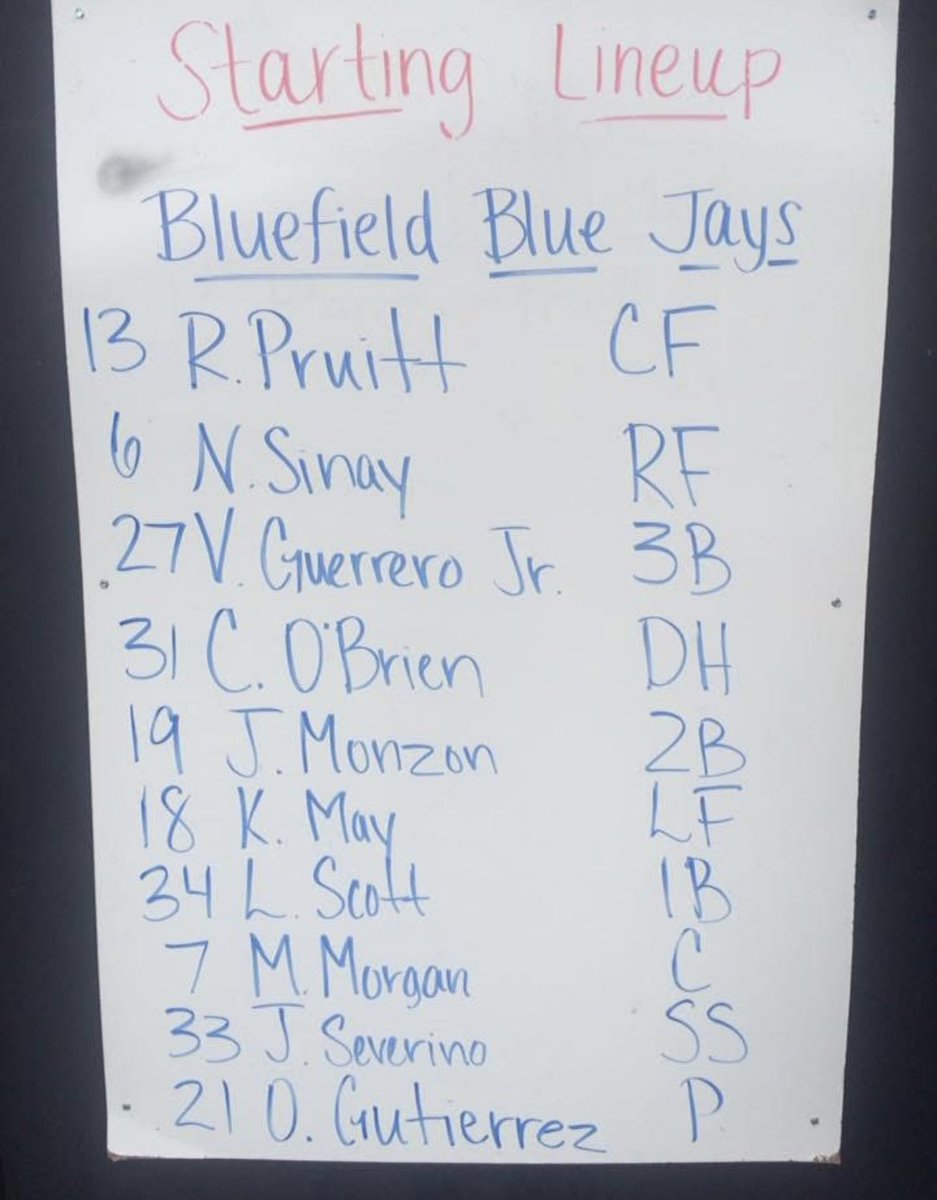 Starting Lineup
Bluefield Blue Jays
13 R. Pruitt CF
6 N. Sinay RF
27 V. Guerrero Jr. 3B
31 C. O'Brien DH
19 J. Monzon 2B
18 K. May LF
34 L. Scott 1B
7 M. Morgan C
33 J. Severino SS
21 O. Gutierrez P